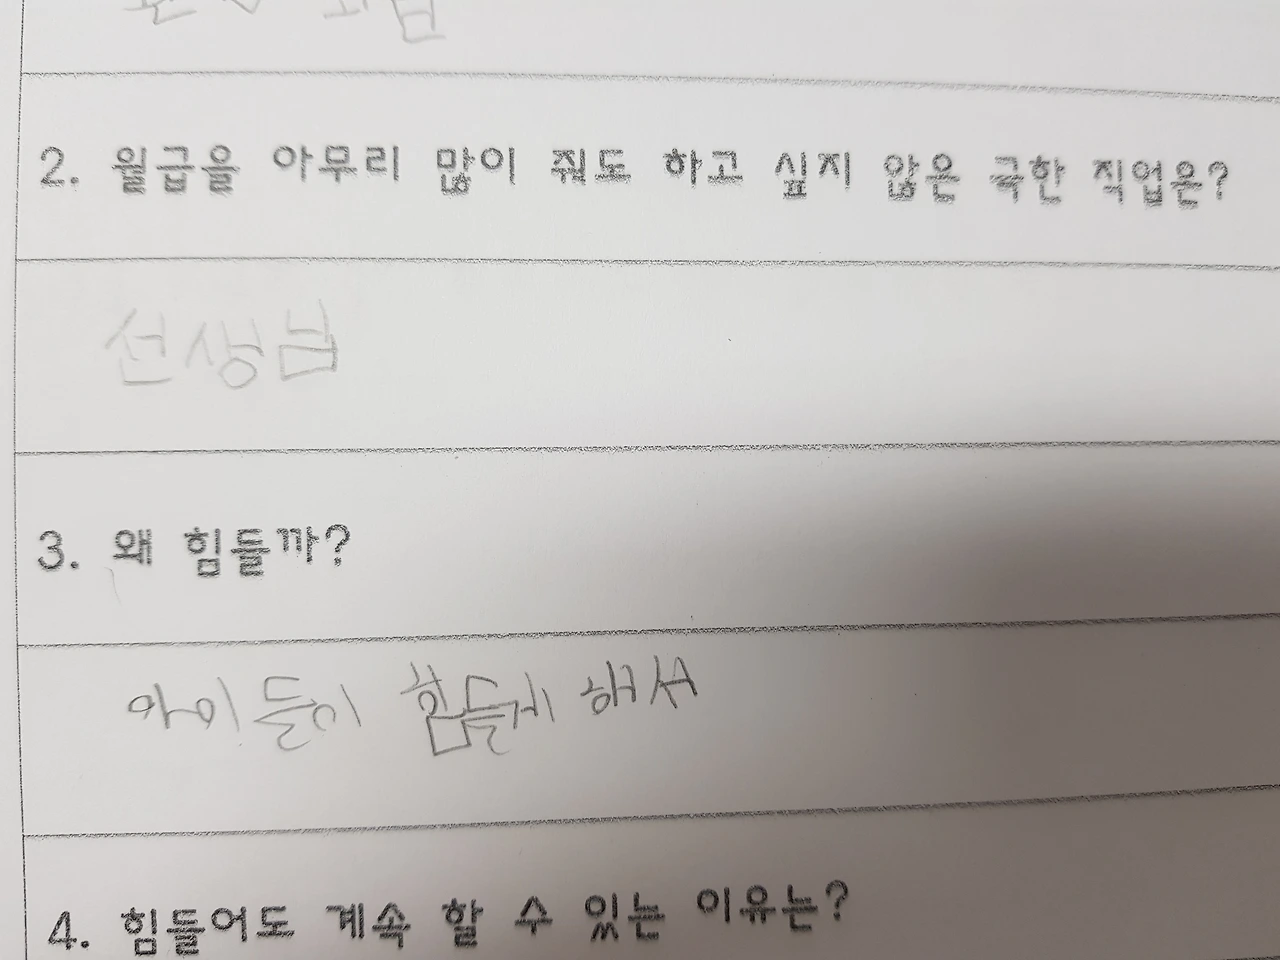 2. 월급을 아무리 많이 줘도 하고 싶지 않은 극한 직업은?
선생님
3. 왜 힘들까?
아이들이 힘들게 해서
4. 힘들어도 계속 할 수 있는 이유는?